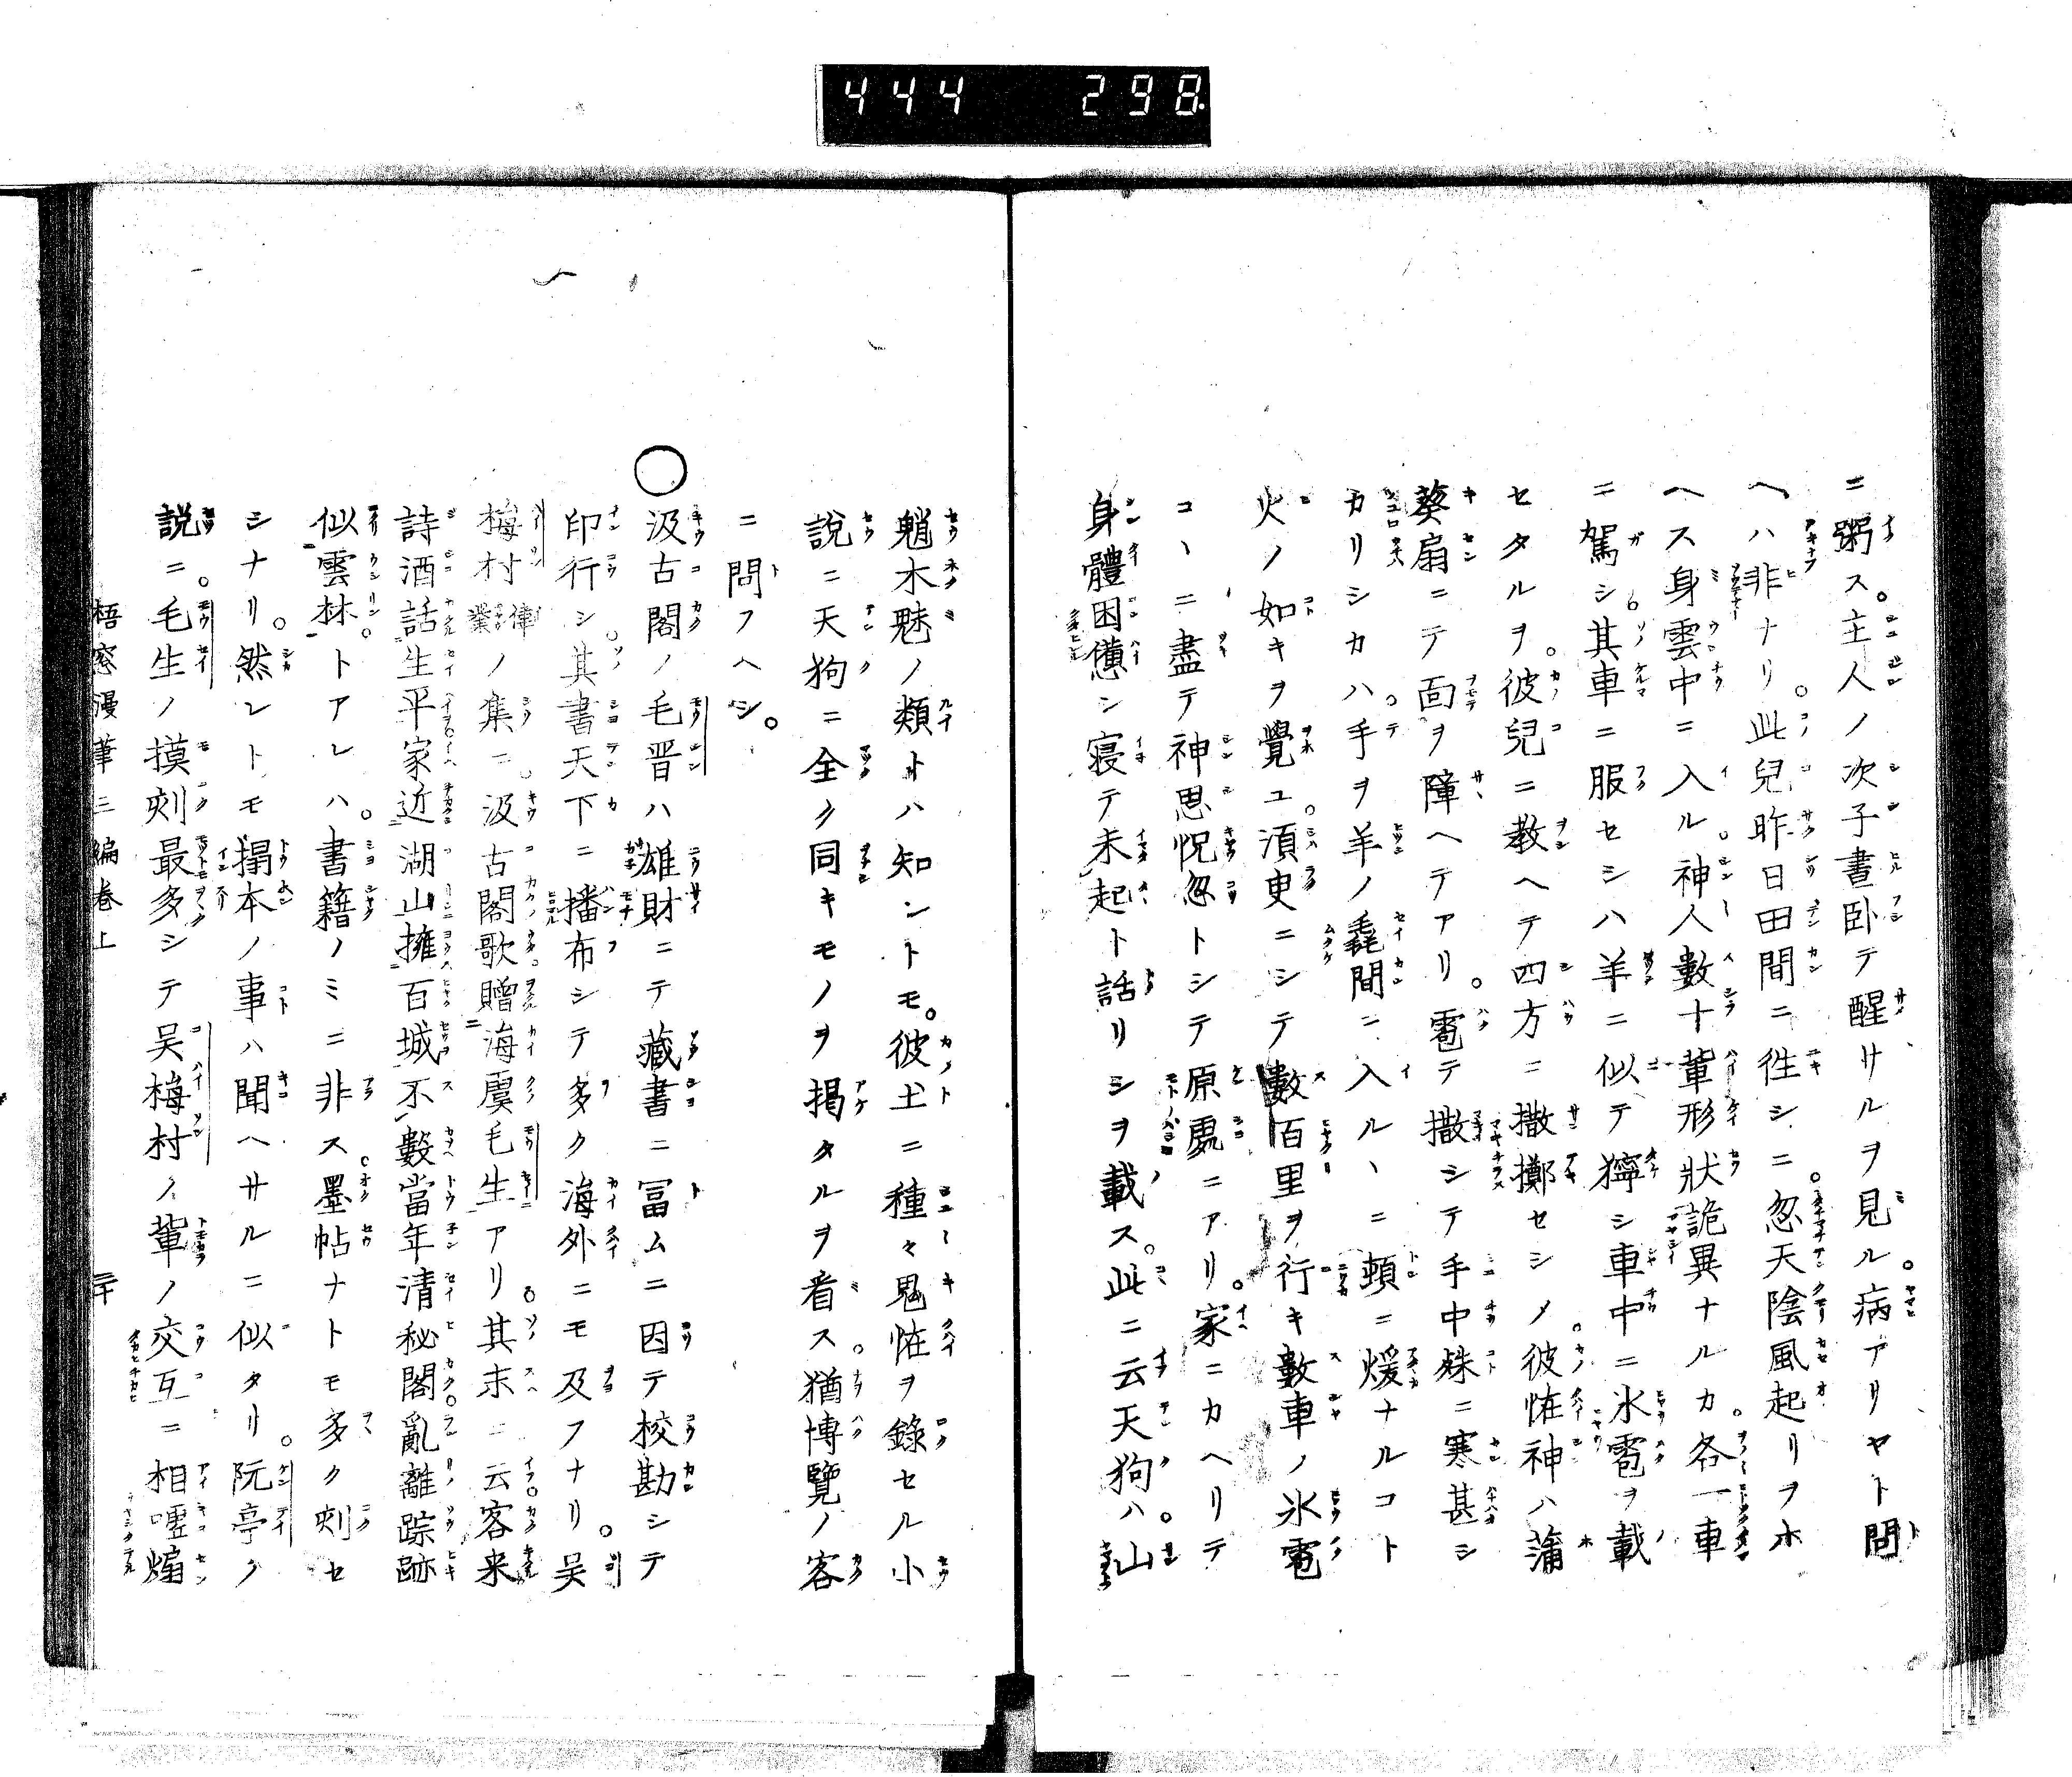 444 298
ニ粥ス。主人ノ次子晝臥テ醒サルヲ見ル。病アリヤト問
ヘハ非ナリ。此兒昨日田間ニ徃シニ。忽天陰風起リヲホ
ヘス身雲中ニ入ル。神人數十輩形狀詭異ナルカ。各一車
ニ駕シ。其車ニ服セシハ羊ニ似テ獰シ車中ニ氷雹ヲ載
セタルヲ。彼兒ニ教ヘテ四方ニ撒擲セシメ。彼恠神ハ蒲
葵扇ニテ面ヲ障ヘテアリ。雹テ撒シテ手中殊ニ寒甚シ
カリシカハ。手ヲ羊ノ毳間ニ入ル丶ニ頓ニ煖ナルコト
火ノ如キヲ覺ユ。須臾ニシテ數百里ヲ行キ數車ノ氷雹
コ丶ニ盡テ神思怳忽トシテ原處ニアリ。家ニカヘリテ
身體困憊シ寝テ未起ト話リシヲ載ス。此ニ云天狗ハ。山
魈木魅ノ類トハ知ントモ。彼土ニ種々鬼恠ヲ錄セル小
說ニ天狗ニ全ク同キモノヲ掲タルヲ看ス。猶博覽ノ客
ニ問フヘシ。
○汲古閣ノ毛晋ハ雄財ニテ藏書ニ冨ムニ因テ校勘シテ
印行シ。其書天下ニ播布シテ多ク海外ニモ及フナリ。吴
梅村偉業ノ集ニ。汲古閣歌贈海虞毛生アリ。其末ニ云客来
詩酒話生平家近湖山擁百城不數當年清秘閣亂離踪跡
似雲林。トアレハ。書籍ノミニ非ス墨帖ナトモ多ク刻セ
シナリ。然レトモ搨本ノ事ハ聞ヘサルニ似タリ。阮亭ク
説ニ。毛生ノ摸刻最多シテ吴梅村ノ輩ノ交互ニ相嘘煽
梧窓漫筆三編巻上 三十